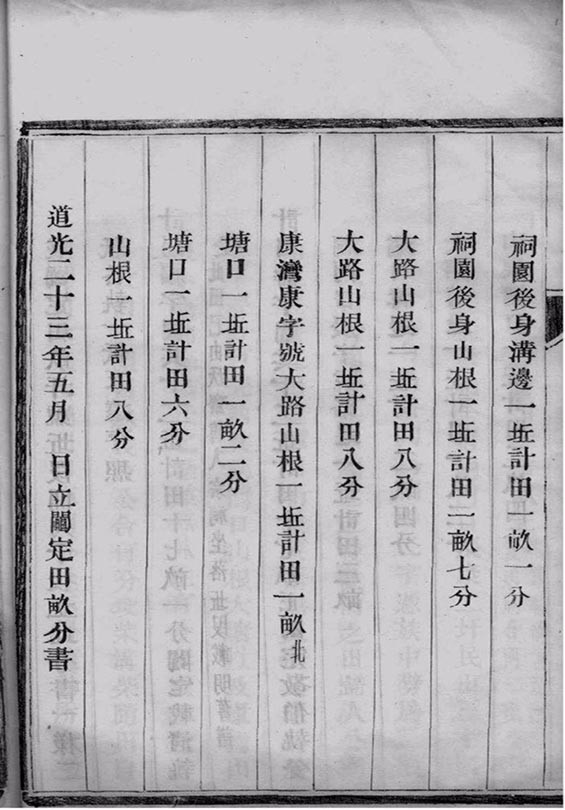 祠園後身溝邊一坵計田一畝一分
祠園後身山根一坵計田一畝七分
大路山根一坵計田八分
大路山根一坵計田八分
康灣康字號大路山根一坵計田一畝北
塘口一坵計田一畝二分
塘口一坵計田六分
山根一坵計田八分
道光二十三年五月 日立鬮定田畝分書